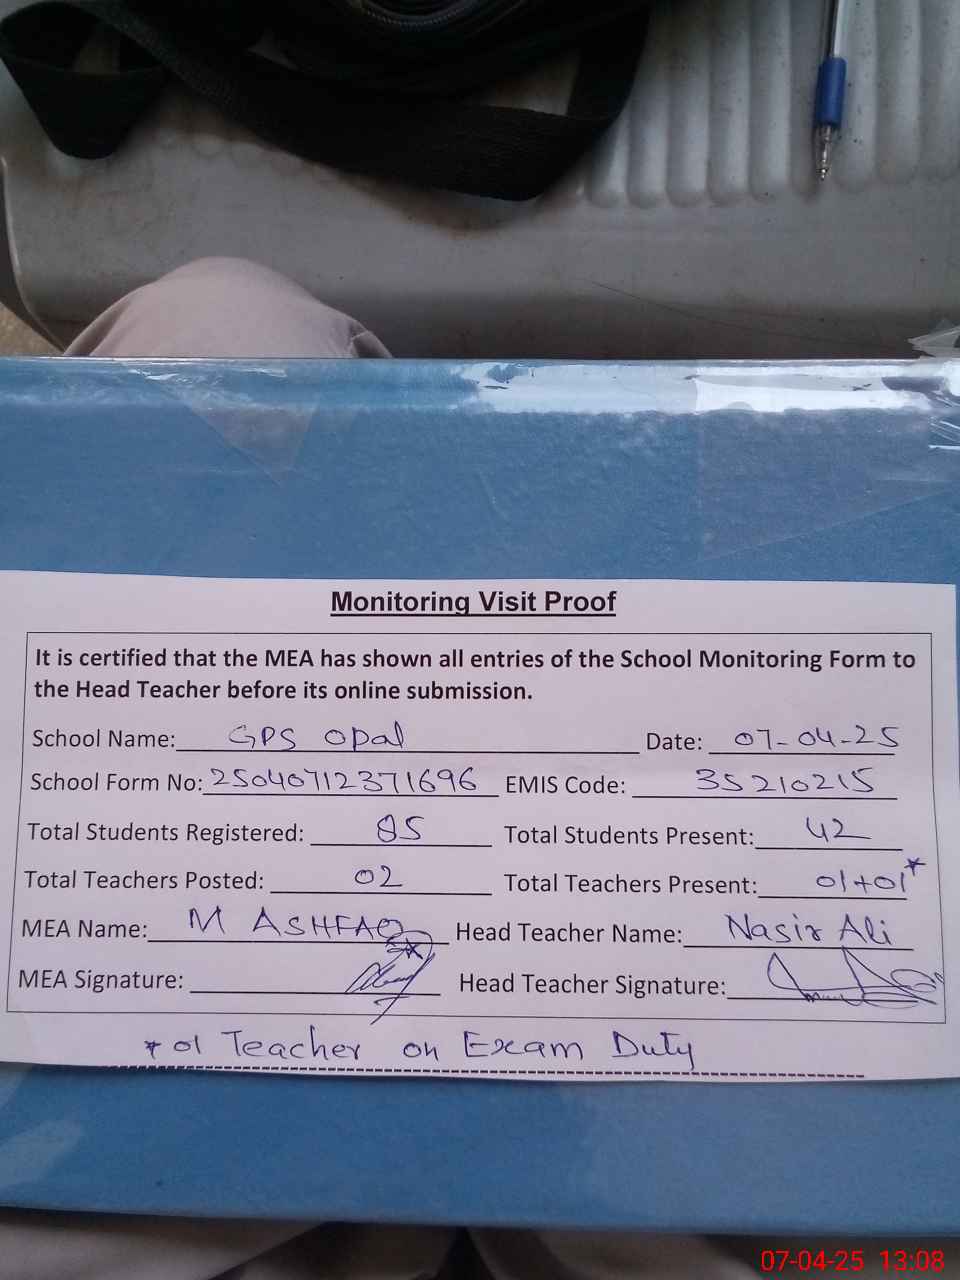 Monitoring Visit Proof
It is certified that the MEA has shown all entries of the School Monitoring Form to
the Head Teacher before its online submission.
School Name: GPS Opal Date: 07-04-25
School Form No: 25040712371696 EMIS Code: 35210215
Total Students Registered: 85 Total Students Present: 42
Total Teachers Posted: 02 Total Teachers Present: 01+01*
MEA Name: M ASHFAQ Head Teacher Name: Nasir Ali
MEA Signature: Head Teacher Signature:
* 01 Teacher on Exam Duty
07-04-25 13:08